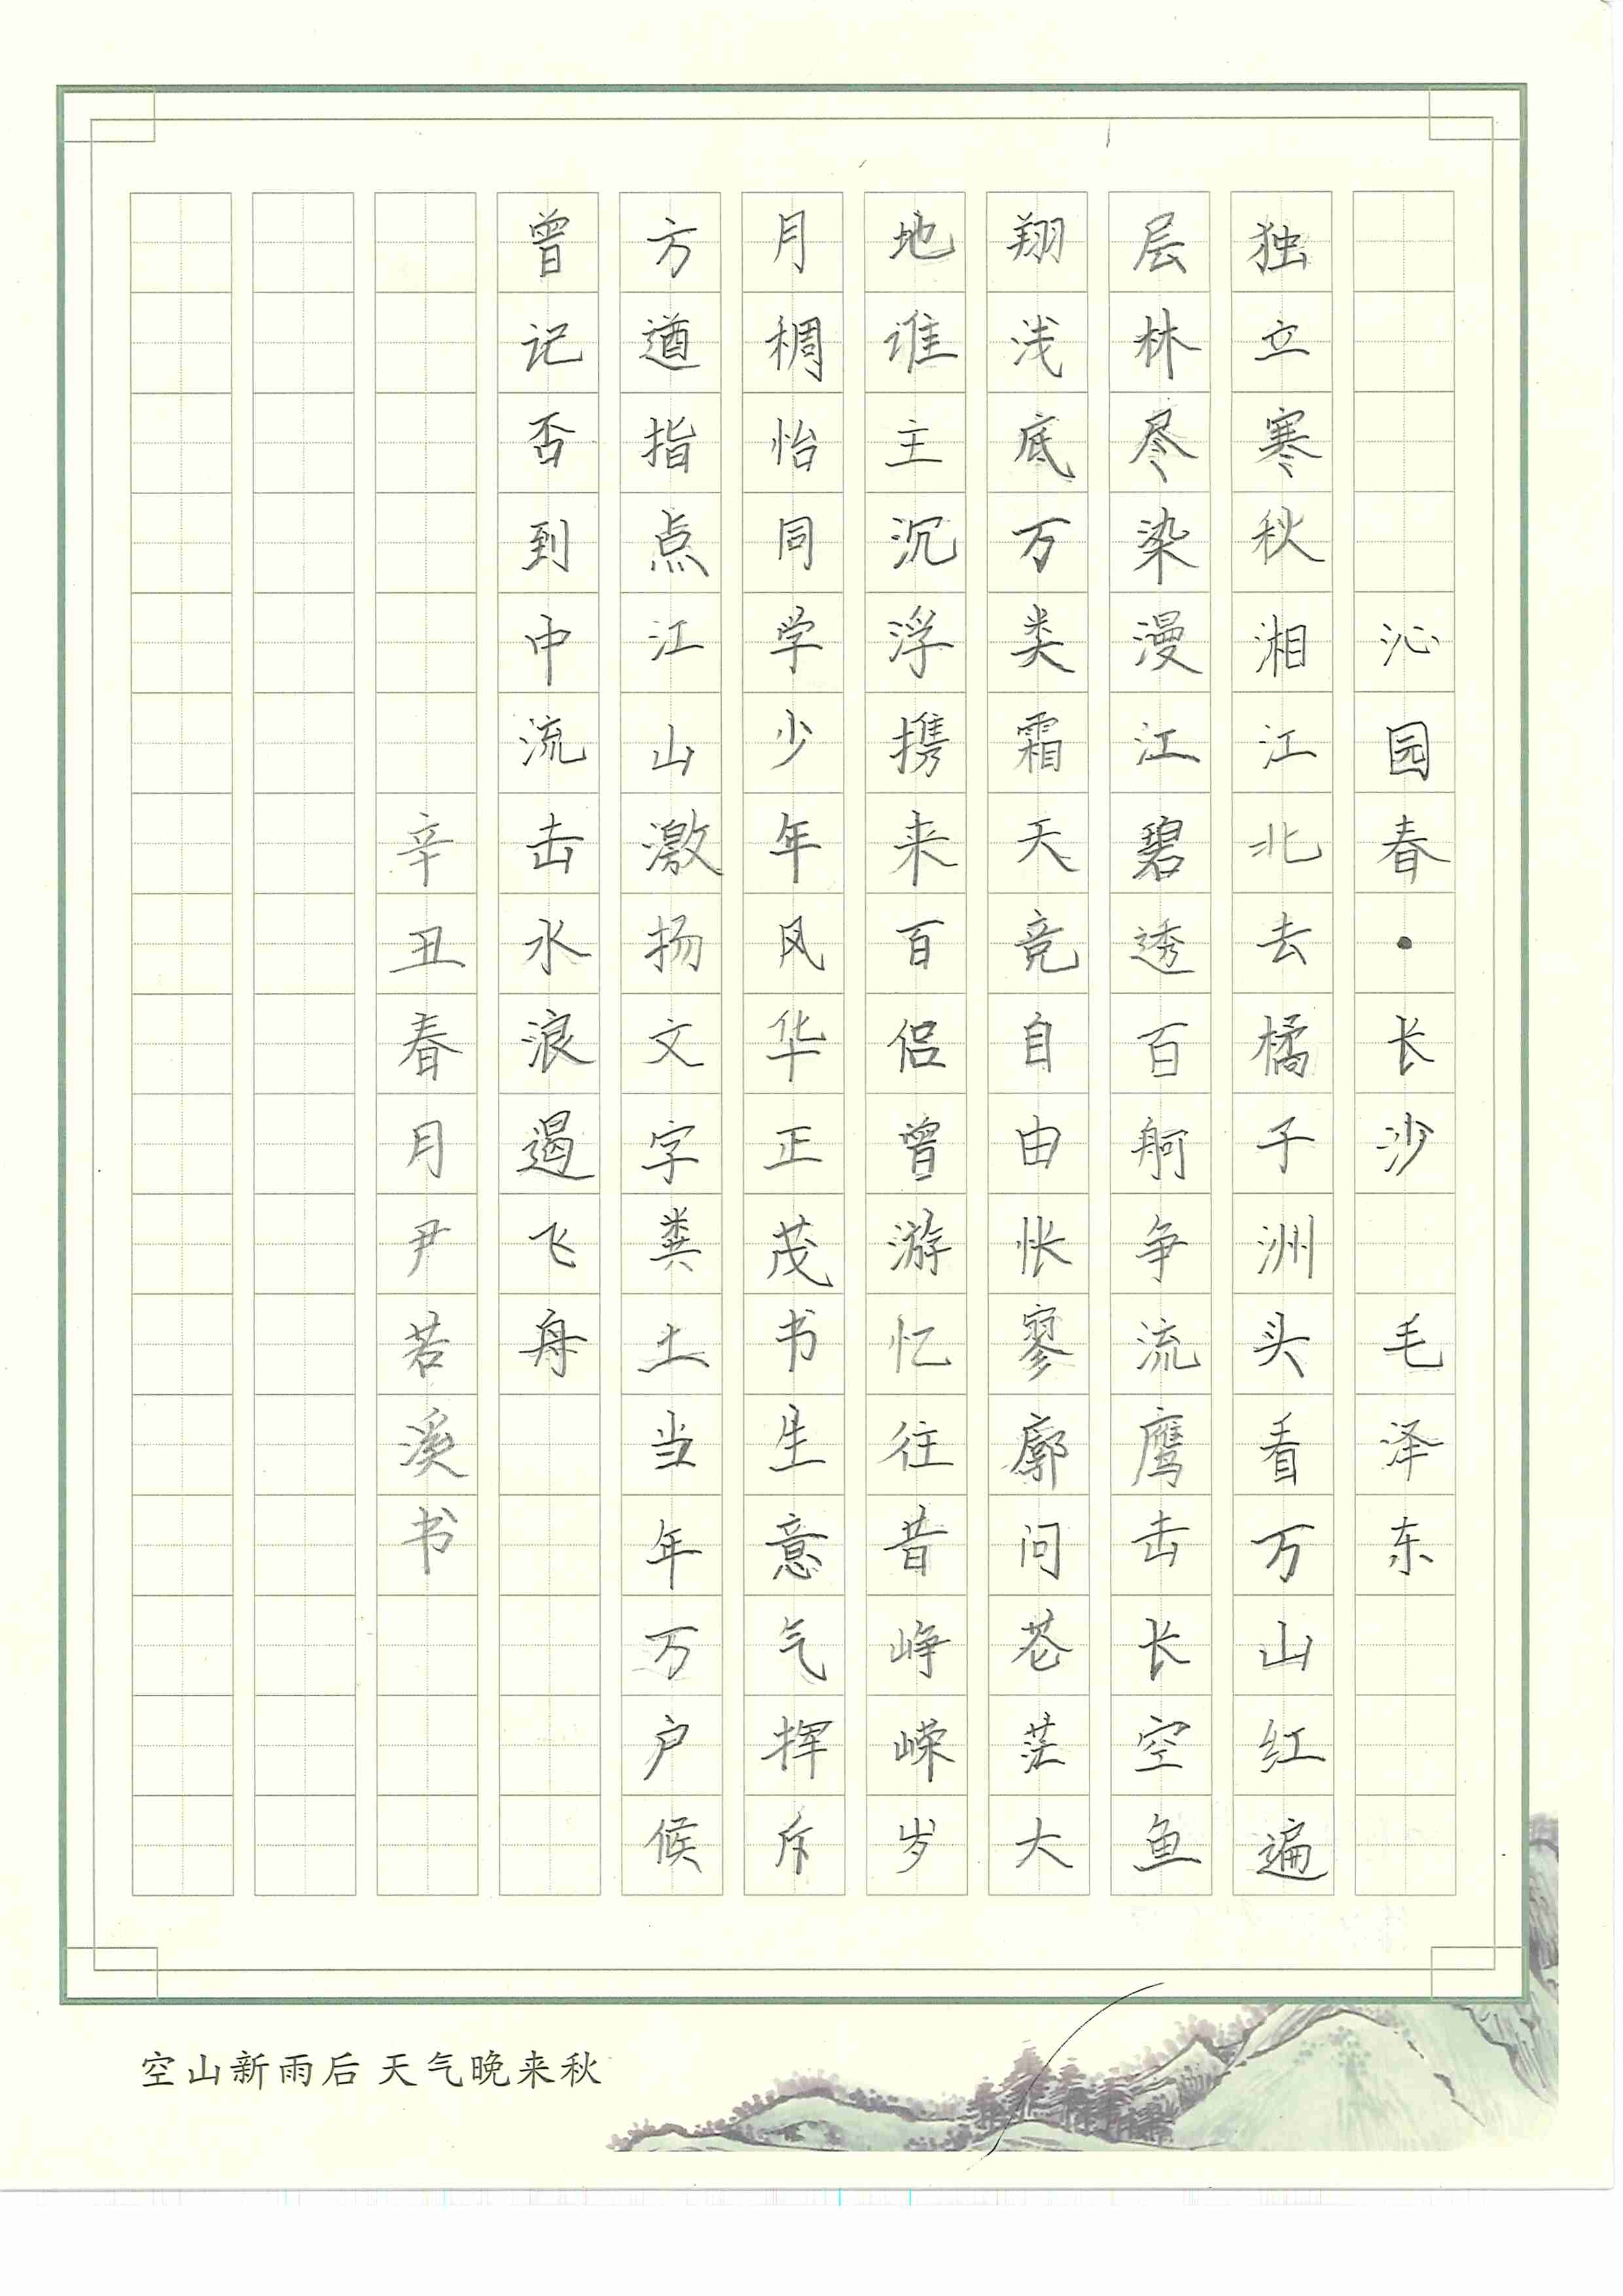 沁园春·长沙 毛泽东
独立寒秋湘江北去橘子洲头看万山红遍
层林尽染漫江碧透百舸争流鹰击长空鱼
翔浅底万类霜天竞自由怅寥廓问苍茫大
地谁主沉浮携来百侣曾游忆往昔峥嵘岁
月稠恰同学少年风华正茂书生意气挥斥
方遒指点江山激扬文字粪土当年万户候
曾记否到中流击水浪遏飞舟
辛丑春月尹若溪书
空山新雨后 天气晚来秋